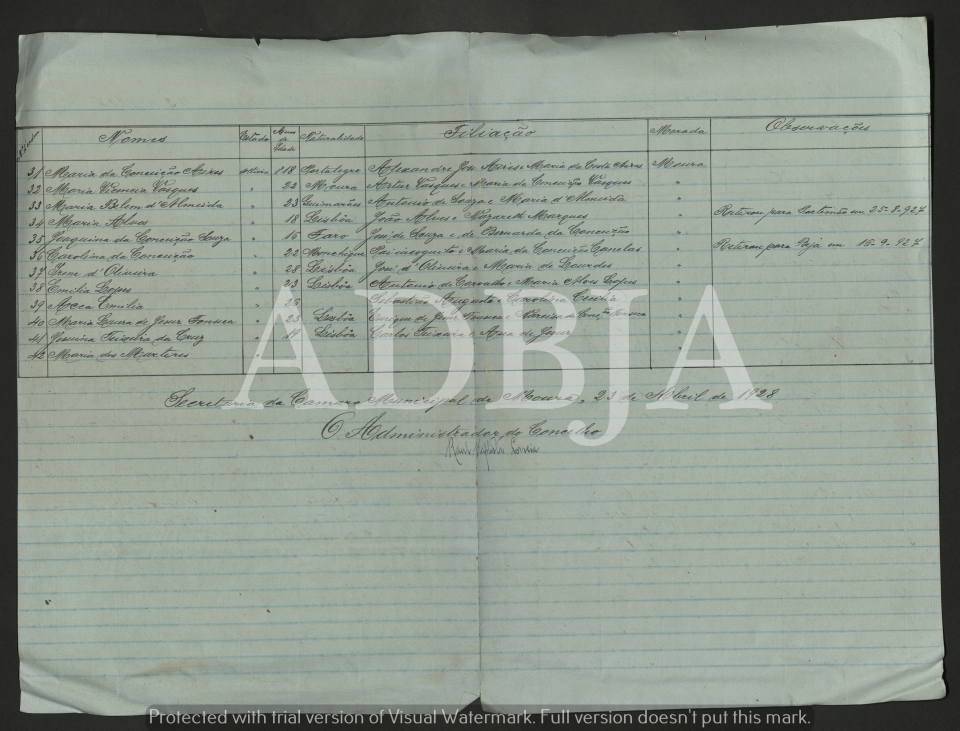 Nomes Estado Anos de Idade Naturalidade Filiação Morada Observações
31 Maria da Conceição Aires solteira 18 Portalegre Alexandre José Aires e Maria da Aires Moura
32 Maria Vasques " 23 Moura Artur Vasques e Maria da Conceição Vasques "
33 Maria Belem d'Almeida " 23 Guimarães Antonio de Souza e Maria d'Almeida "
34 Maria Alves " 18 Lisbôa João Alves e Nazareth Marques " Retirou para em 25-8-927
35 Joaquina da Conceição Souza " 16 Faro José de Souza e de Bernarda da Conceição "
36 Carolina da Conceição " 22 Monchique Pai incognito e Maria da Conceição " Retirou para Beja em 15-9-927
37 Irene d'Oliveira " 28 Lisbôa José d'Oliveira e Maria de Lourdes "
38 Emilia Lopes " 23 Lisbôa Antonio de Carvalho e Maria Alves Lopes "
39 Emilia " 25 Sebastião Augusto e Carolina "
40 Maria de Jesus Fonseca " 23 Lisbôa de Jesus Fonseca e Fonseca "
41 Teixeira da Cruz " 19 Lisbôa Carlos Teixeira e Ana de Jesus "
42 Maria dos Martires " "
Secretaria da Camara Municipal de Moura, 23 de Abril de 1928
O Administrador do Concelho
Raul Correia
ADBJA
Protected with trial version of Visual Watermark. Full version doesn't put this mark.